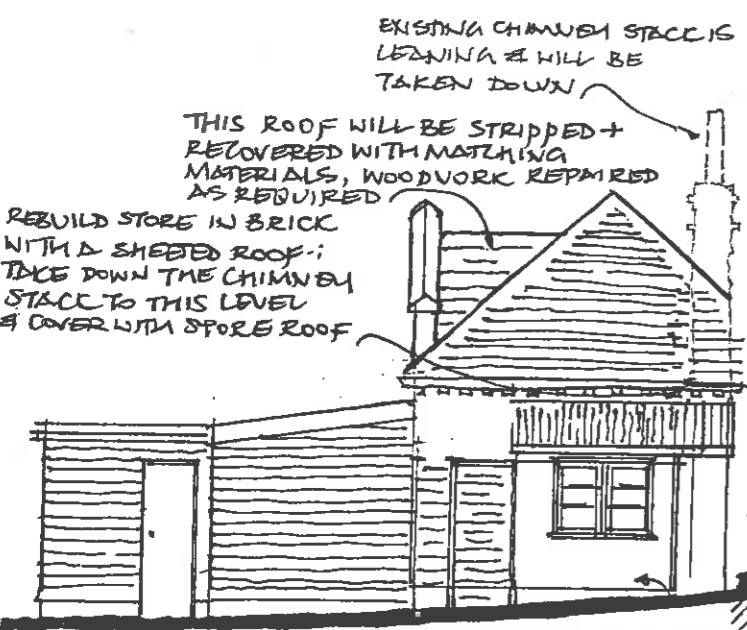 EXISTING CHIMNEY STACK IS
LEANING & WILL BE
TAKEN DOWN
THIS ROOF WILL BE STRIPPED +
RECOVERED WITH MATCHING
MATERIALS, WOODWORK REPAIRED
AS REQUIRED
REBUILD STORE IN BRICK
WITH A SHEETED ROOF:
TAKE DOWN THE CHIMNEY
STACK TO THIS LEVEL
& COVER WITH STORE ROOF